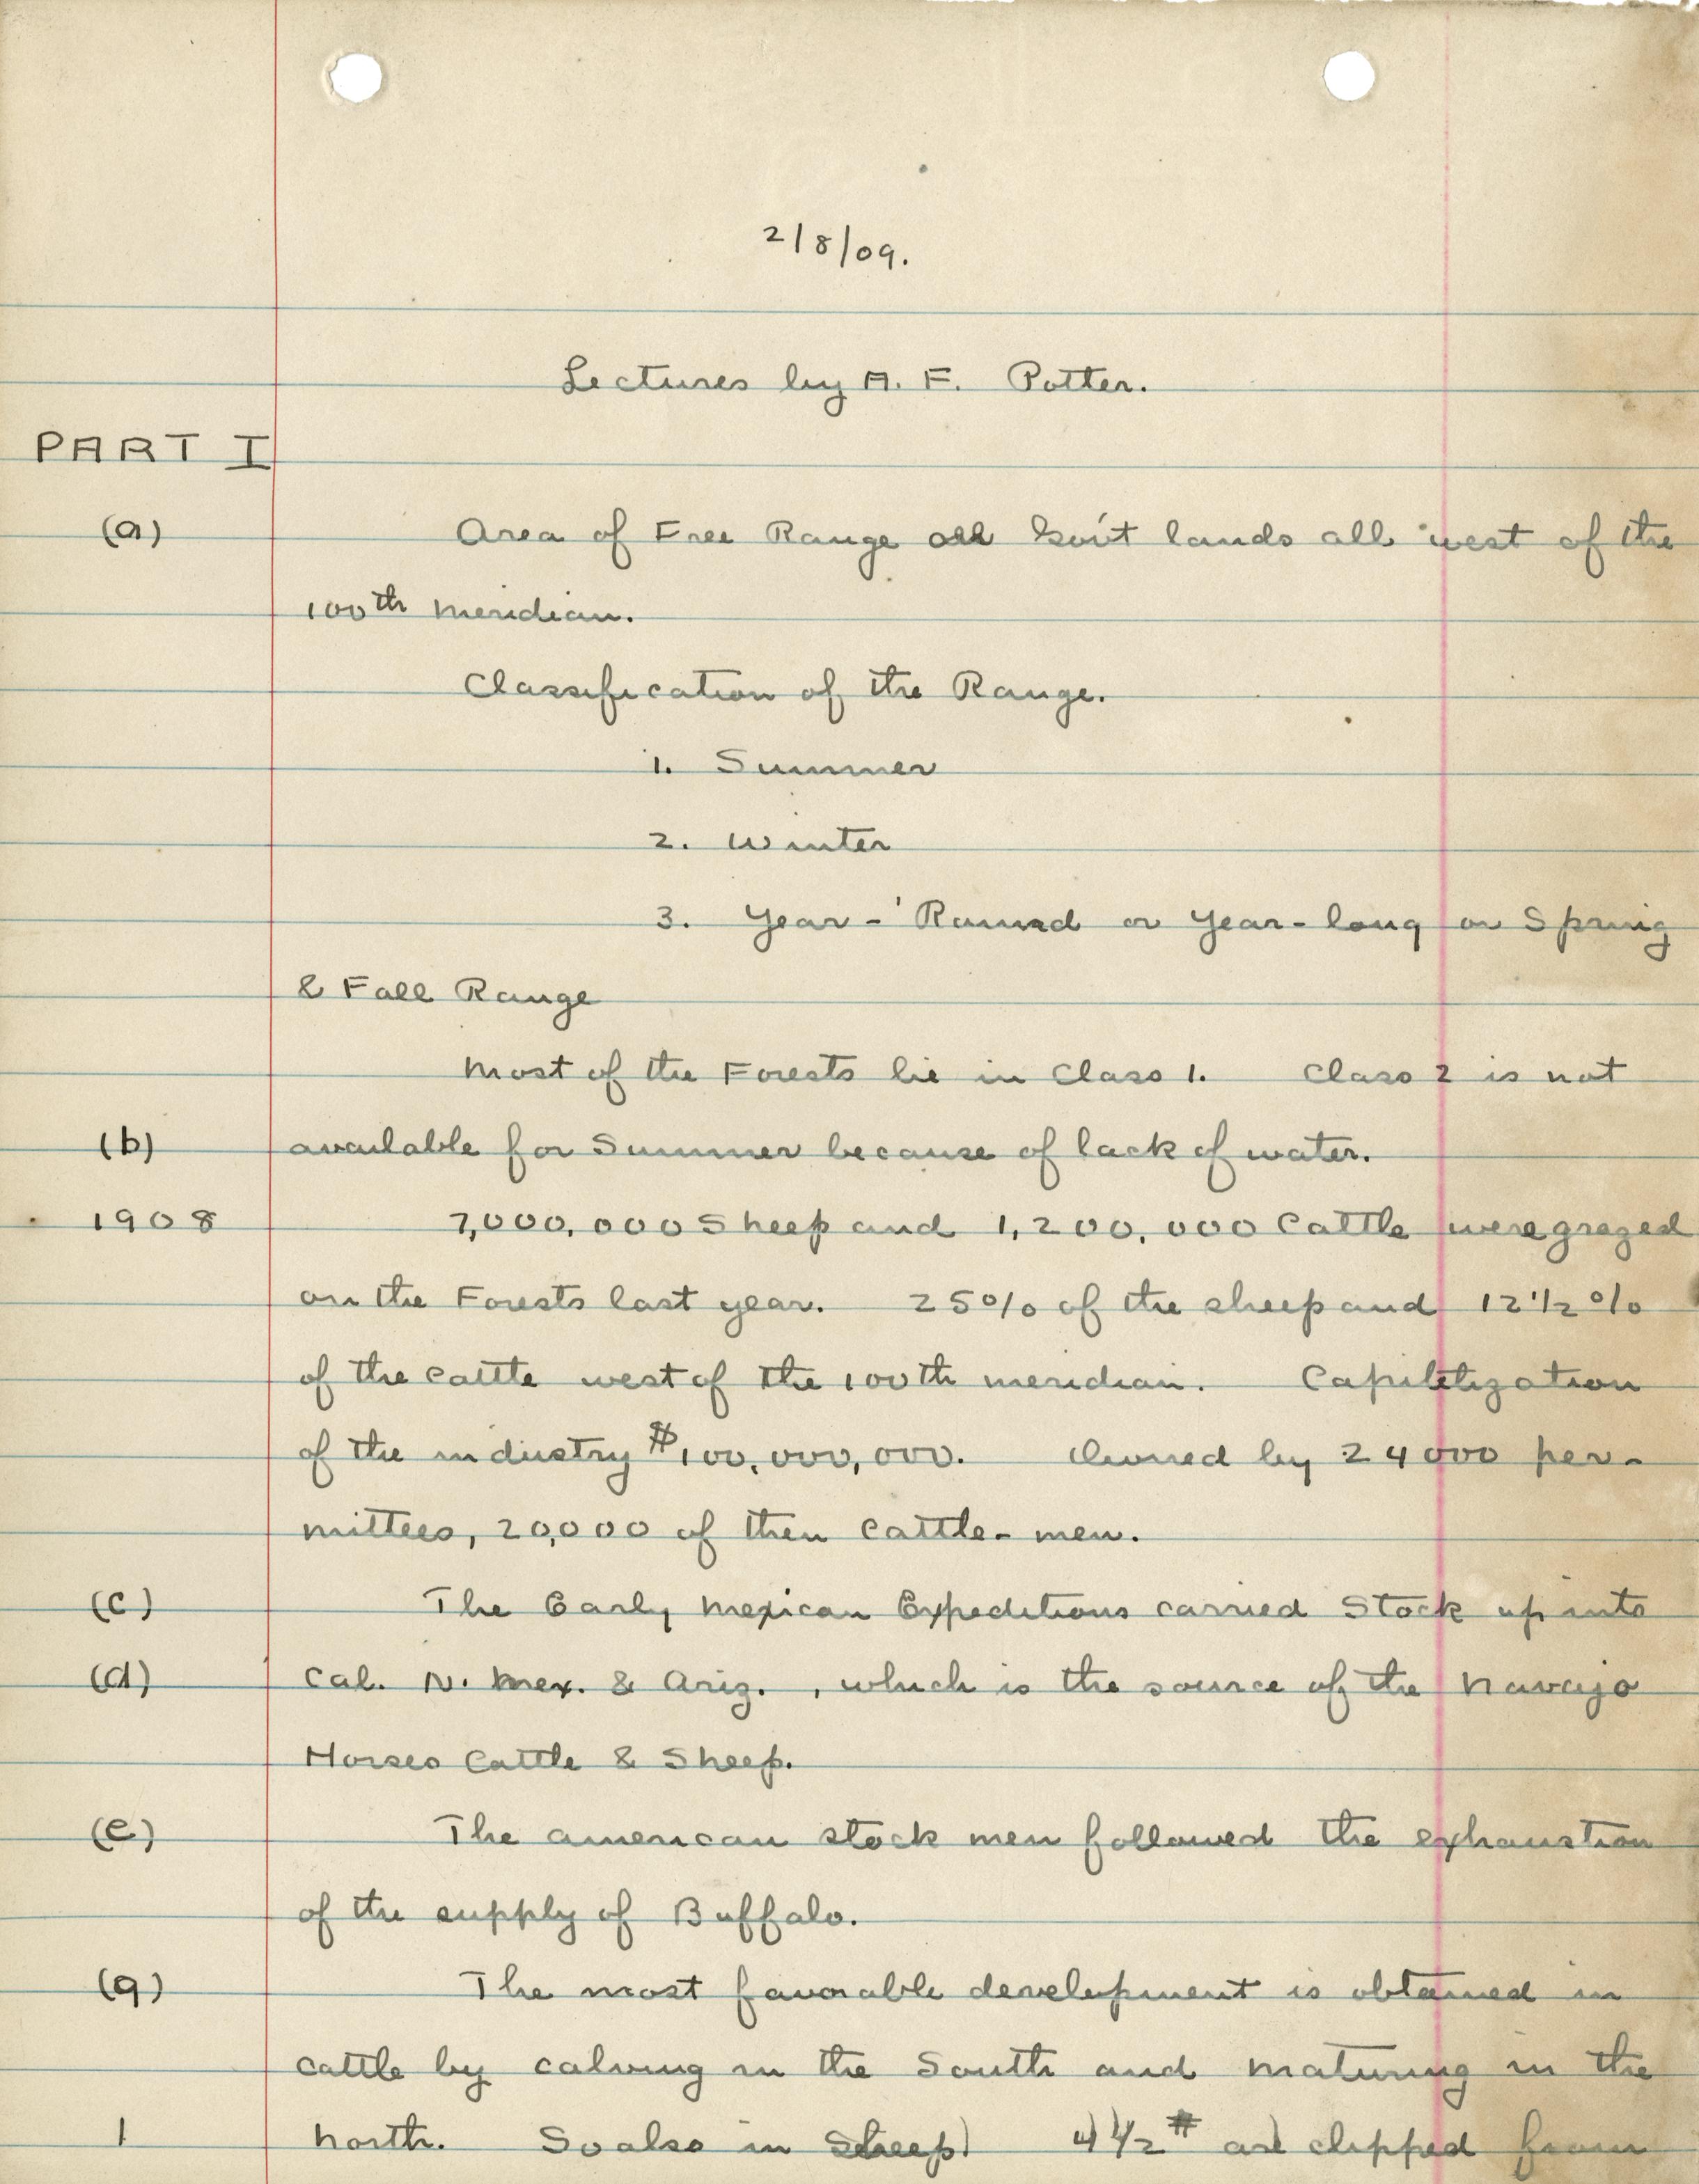 2/8/09.
Lectures by A. F. Potter.
PART I
(a) Area of Free Range all Gov't lands all west of the
100th meridian.
Classification of the Range.
1. Summer
2. Winter
3. Year-Round or Year-long or Spring
& Fall Range
Most of the Forests lie in Class 1. Class 2 is not
(b) available for Summer because of lack of water.
1908 7,000,000 Sheep and 1,200,000 Cattle were grazed
on the Forests last year. 25% of the sheep and 12 1/2 %
of the cattle west of the 100th meridian. Capiletization
of the industry $100,000,000. Owned by 24000 per-
mittees, 20,000 of then cattle-men.
(c) The Early Mexican Expeditions carried Stock up into
(d) Cal. N. Mex. & Ariz., which is the source of the Navajo
Horses Cattle & Sheep.
(e) The American stock men followed the exhaustion
of the supply of Buffalo.
(g) The most favorable development is obtained in
cattle by calving in the South and maturing in the
1 North. So also in Sheep 4 1/2 # are clipped from